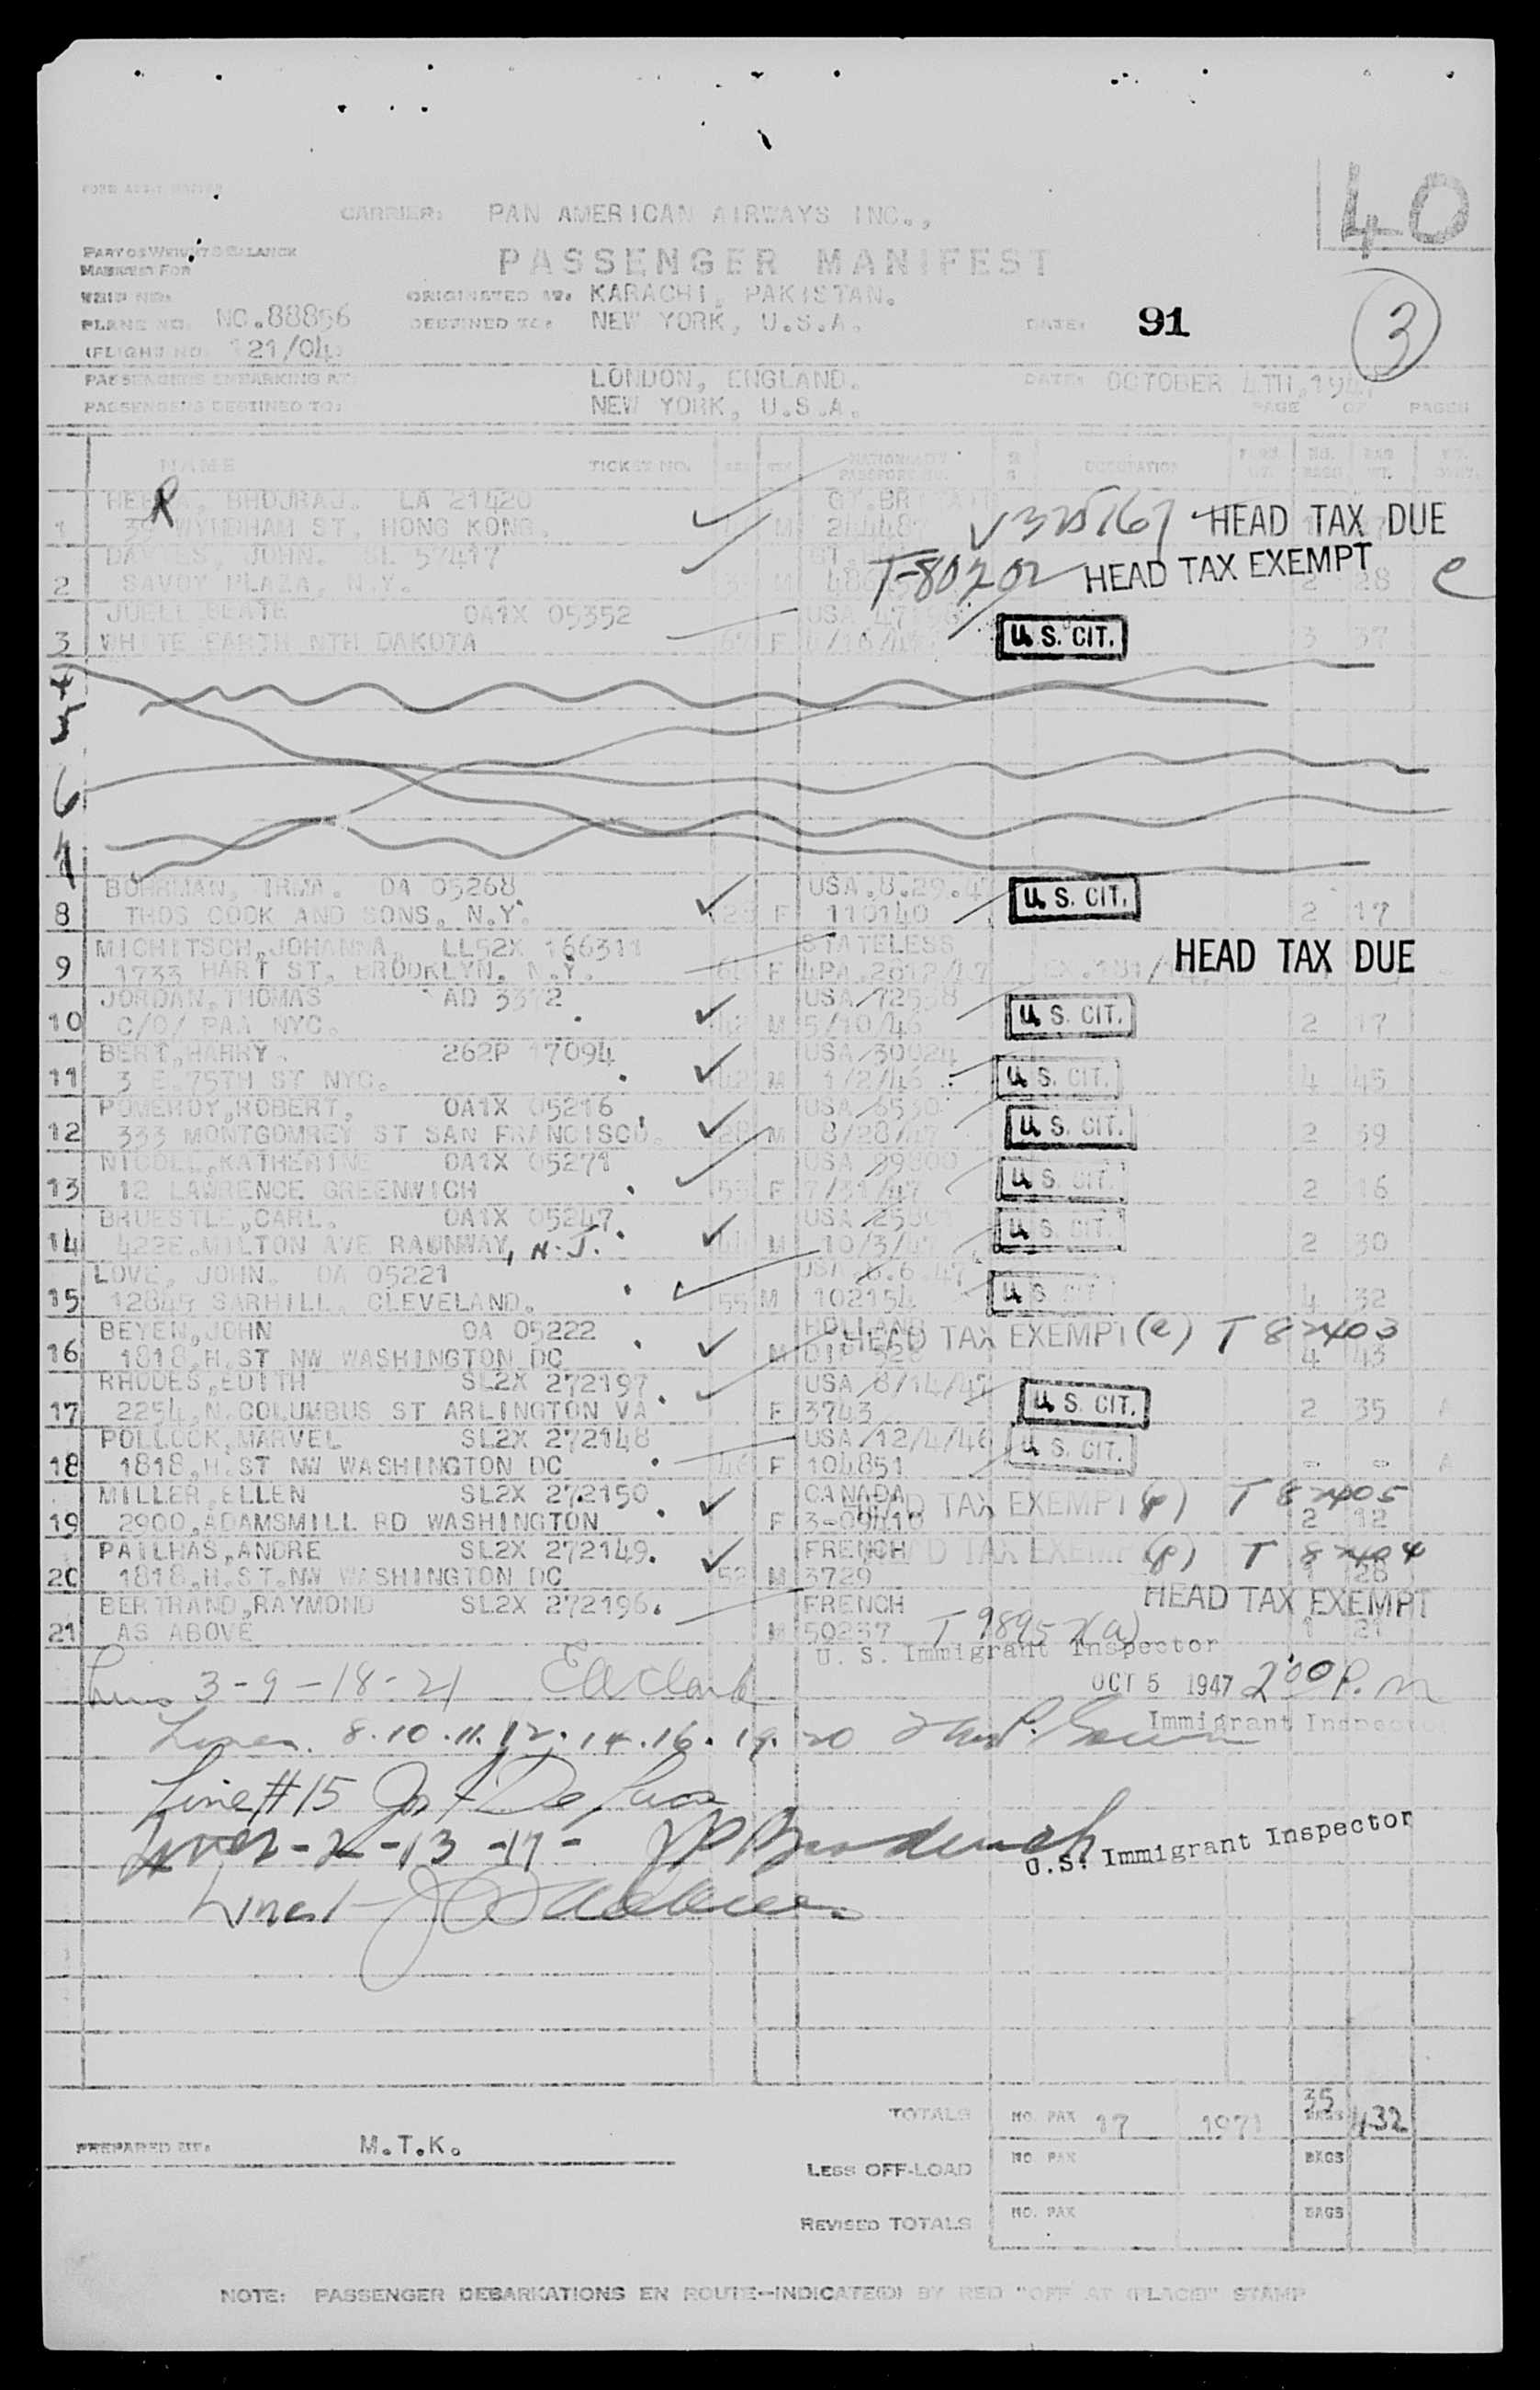 40
CARRIER: PAN AMERICAN AIRWAYS INC.,
PART OF WEIGHT & BALANCE
PASSENGER MANIFEST
MANIFEST FOR
TRIP NO:
ORIGINATED AT: KARACHI, PAKISTAN.
PLANE NO. NC.88856
DESTINED TO: NEW YORK, U.S.A.
DATE: 91
3
FLIGHT NO. 121/04
PASSENGERS EMBARKING AT: LONDON, ENGLAND.
DATE: OCTOBER 4TH, 1947
PASSENGERS DESTINED TO: NEW YORK, U.S.A.
PAGE OF PAGES
NAME TICKET NO. AGE SEX NATIONALITY PASSPORT NO. OCCUPATION NO. BAGS BAG WT.
BHOJRAJ. LA 21420 GT.BR
1 WYNDHAM ST, HONG KONG. M HEAD TAX DUE
DAVIES, JOHN. 57417
2 SAVOY PLAZA, N.Y. M T-80202 HEAD TAX EXEMPT 2 28 e
JUELL BEATE OA1X 05352 USA
3 WHITE EARTH NTH DAKOTA 67 F U.S. CIT. 3 37
4
5
6
7
BOHRMAN, IRMA. OA 05268 USA.8.29.47
8 THOS COOK AND SONS, N.Y. F 110140 U.S. CIT. 2 17
MICHITSCH, JOHANNA. LL52X 166311 STATELESS
9 1733 HART ST, BROOKLYN, N.Y. F 4PA.2012/47 HEAD TAX DUE
JORDAN, THOMAS AD 3372 USA/72538
10 C/O/ PAA NYC. 42 M 5/10/46 U.S. CIT. 2 17
BERT, HARRY. 262P 17094 USA/30024
11 3 E.75TH ST NYC. 42 M 1/2/46 U.S. CIT. 4 45
POMEROY, ROBERT, OA1X 05216 USA/6530
12 333 MONTGOMREY ST SAN FRANCISCO. 28 M 8/28/47 U.S. CIT. 2 39
NICOLL, KATHERINE OA1X 05271 USA 99800
13 12 LAWRENCE GREENWICH 55 F 7/31/47 U.S. CIT. 2 16
BRUESTLE, CARL. OA1X 05247 USA
14 422E.MILTON AVE RAUNWAY, N.J. M 10/3/47 U.S. CIT. 2 30
LOVE, JOHN. OA 05221 USA.6.6.47
15 12845 SARHILL, CLEVELAND. 55 M 102154 U.S. CIT. 4 32
BEYEN, JOHN OA 05222 HOLLAND HEAD TAX EXEMPT (e) T 82403
16 1818, H.ST NW WASHINGTON DC M DIP 4 43
RHODES, EDITH SL2X 272197. USA/8/14/47
17 2254, N.COLUMBUS ST ARLINGTON VA F 3743 U.S. CIT. 2 35
POLLOCK, MARVEL SL2X 272148 USA/12/4/46
18 1818, H.ST NW WASHINGTON DC F 104851 U.S. CIT. - -
MILLER, ELLEN SL2X 272150 CANADA HEAD TAX EXEMPT T 82405
19 2900, ADAMSMILL RD WASHINGTON F 3-09410 2 12
PAILHAS, ANDRE SL2X 272149. FRENCH HEAD TAX EXEMPT T 82404
20 1818, H.ST.NW WASHINGTON DC 52 M 3729 1 28
BERTRAND, RAYMOND SL2X 272196. FRENCH HEAD TAX EXEMPT
21 AS ABOVE M 50237 1 21
U. S. Immigrant Inspector
Lines 3-9-18-21 E A Clark OCT 5 1947 2:00 P.m
Lines. 8.10.11.12.14.16.19.20 Immigrant Inspector
Line #15 Jos De Luca
Lines-2-13-17-
U.S. Immigrant Inspector
Line 1
TOTALS NO. PAX 17 1971 35 BAGS 432
PREPARED BY: M.T.K.
LESS OFF-LOAD NO. PAX BAGS
REVISED TOTALS NO. PAX BAGS
NOTE: PASSENGER DEBARKATIONS EN ROUTE—INDICATE(D) BY RED "OFF AT (PLACE)" STAMP